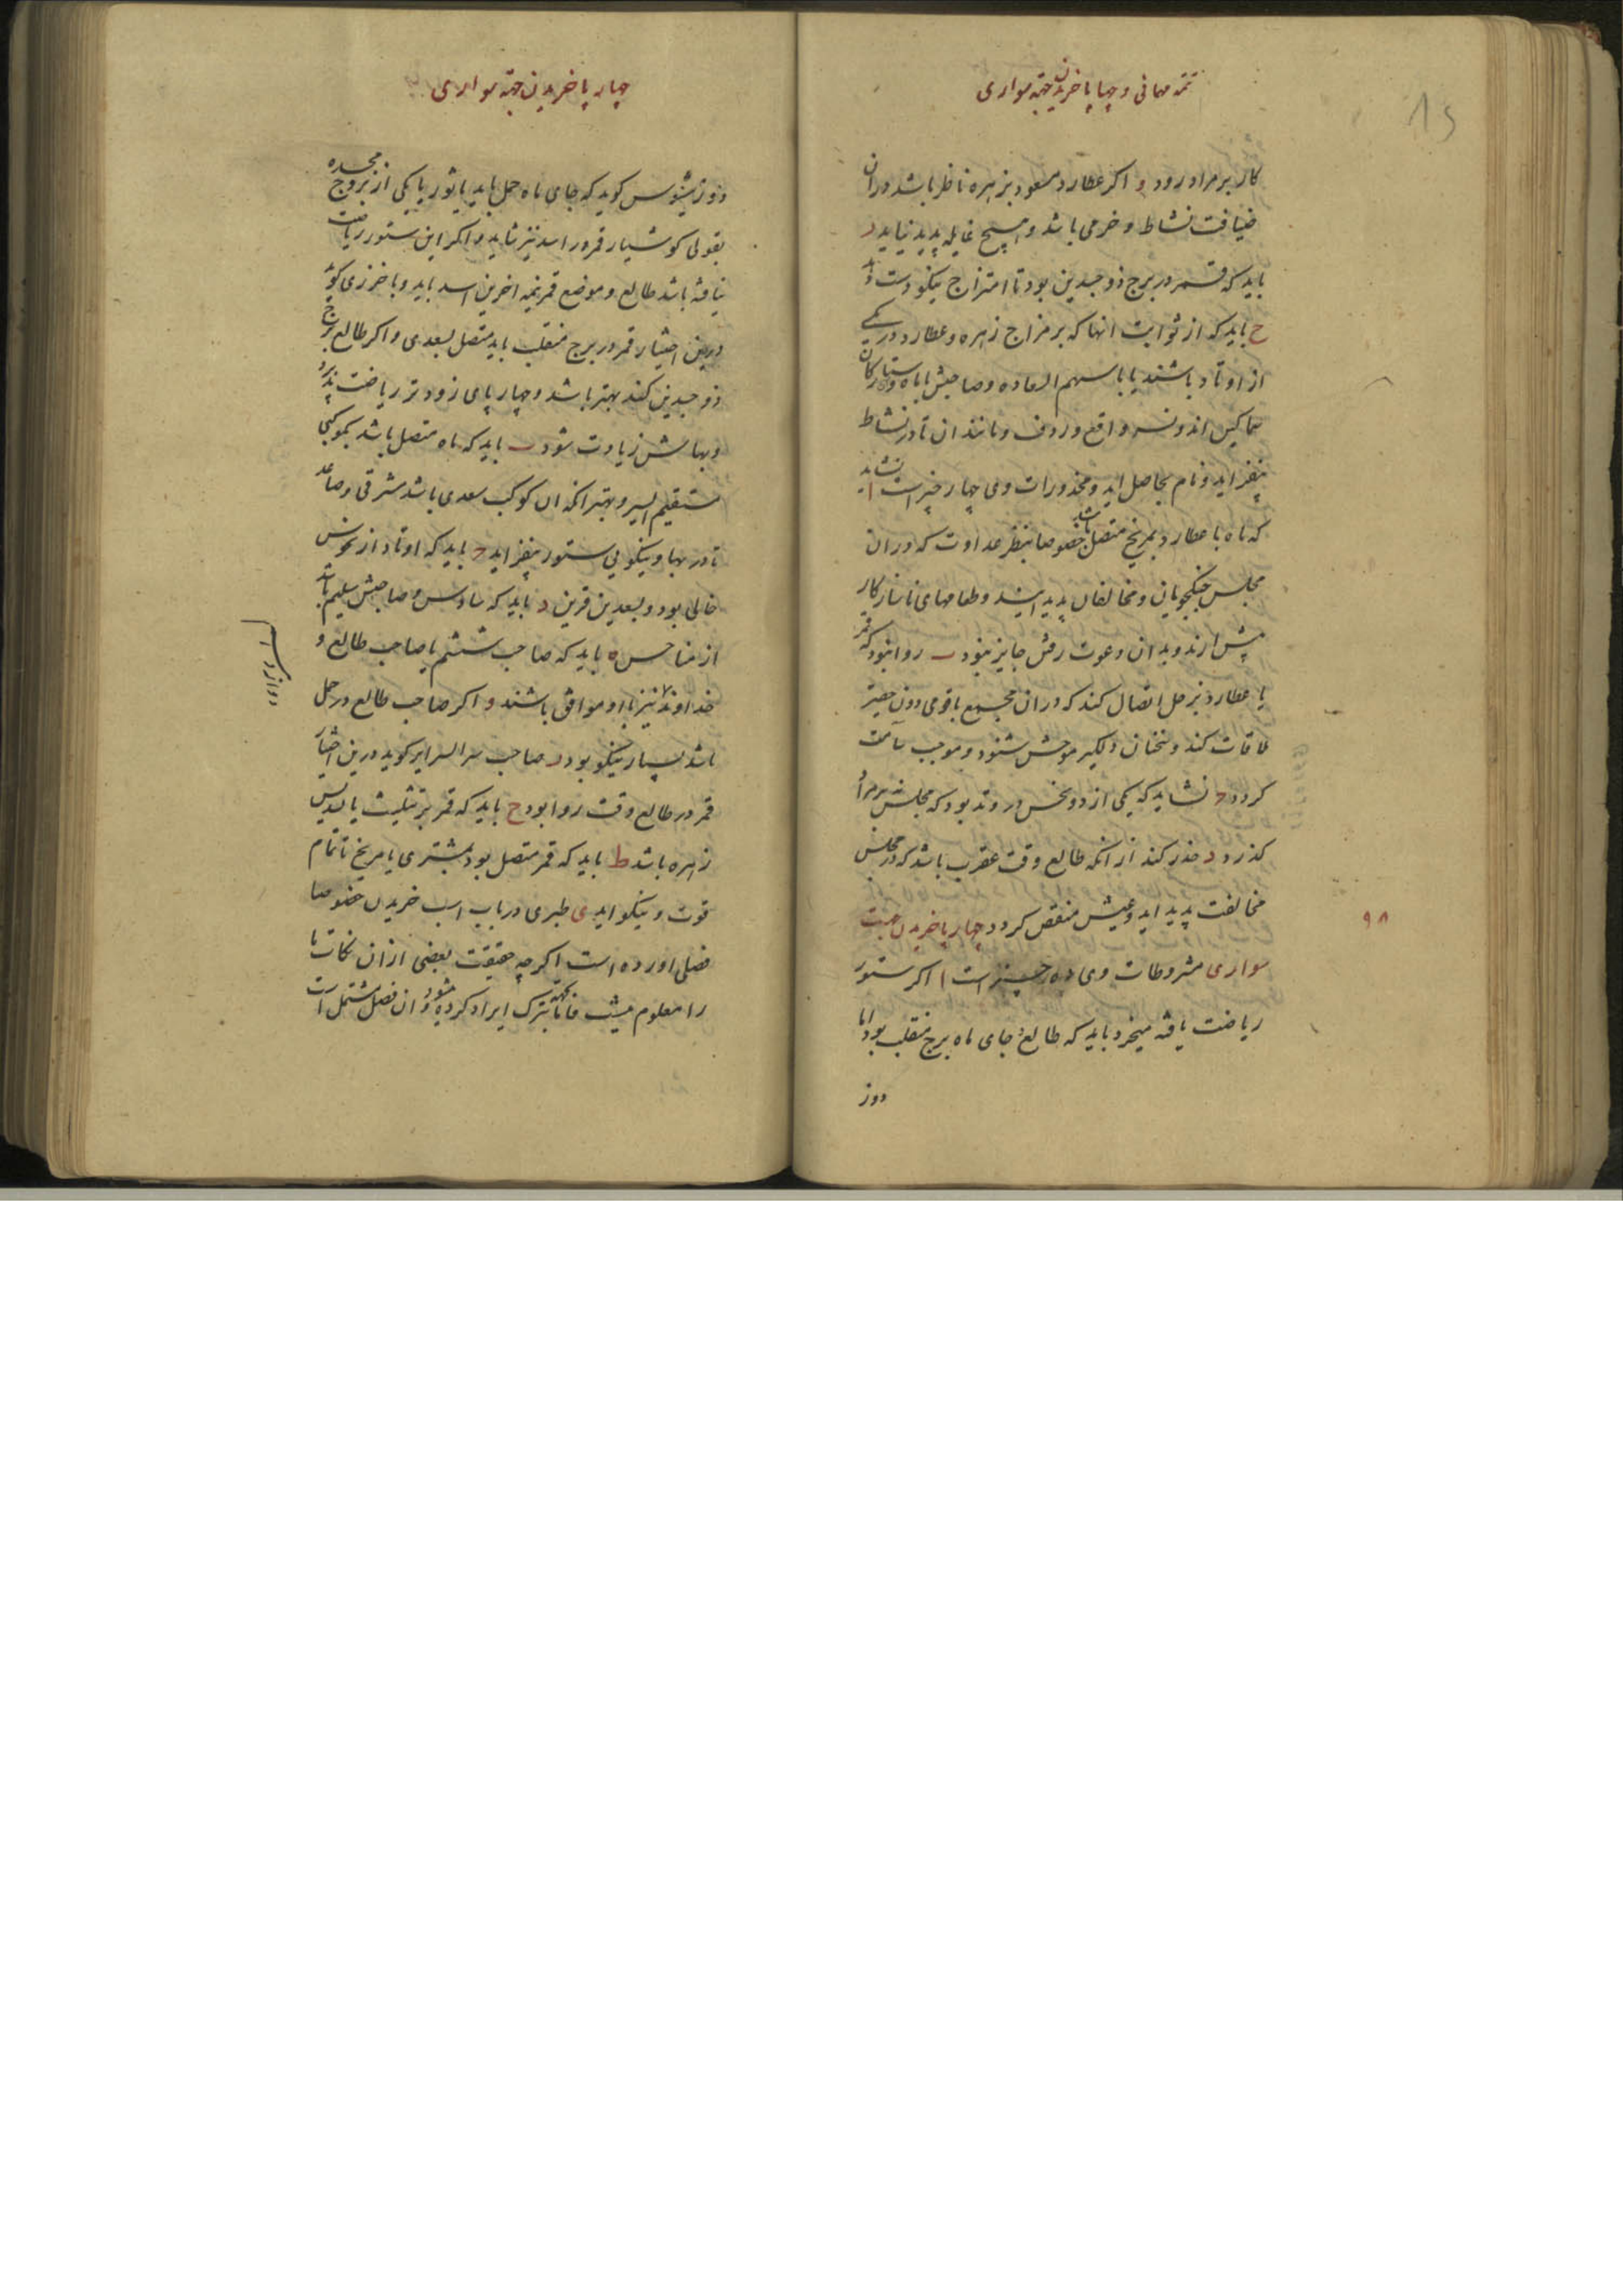 تتمه مهمانی و چهارپا خریدن جهته سواری
کار بر مراد رود و اکر عطارد مسعود بزهره ناظر باشد دران
ضیافت نشاط و خرمی باشد و هیچ غایله پدید نیاید ر
باید که قمر در برج ذوجسدین بود تا امتزاج نیکو دست دهد
ح باید که از ثوابت انها که بر مزاج زهره و عطارد در یکی
از اوتاد باشند یا با سهم السعاده و صاحبش یا ماه و ستارکان
سماکین اند و نسر واقع و ردف و مانند ان تا در نشاط
بیفزاید و نام بحاصل اید و محذورات وی چهار چیز است ا نشاید
که ماه با عطارد بمریخ متصل باشد خصوصا بنظر عداوت که دران
مجلس جنکجویان و مخالفان پدید ایند و طعامهای ناسازکار
پیش ارند و بدان دعوت رفتن جایز نبود ب روا نبود که قمر
یا عطارد بزحل اتصال کند که دران مجمع باقومی دون حقیر
ملاقات کند و سخنان دلکیر موحش شنود و موجب سآمت
کردد ج نشاید که یکی از دو نحس در وتد بود که مجلس نه بر مراد
کذرد د حذر کند از انکه طالع وقت عقرب باشد که در مجلس
مخالفت پدید اید و عیش منغص کردد چهارپا خریدن جهت
سواری مشروطات وی ده چیز است ا اکر ستور
ریاضت یافته میخرد باید که طالع و جای ماه برج منقلب بود اما
دوز
۹۸
چهارپا خریدن جهته سواری
دوزثیوس کوید که جای ماه حمل باید یا ثور یا یکی از بروج مجسده
بقولی کوشیار قمر در اسد نیز شاید و اکر این ستور ریاضت
نیافته باشد طالع و موضع قمر نیمه اخرین اسد باید و باخرزی کوید
درین اختیار قمر در برج منقلب باید متصل بسعدی و اکر طالع برج
ذوجسدین کند بهتر باشد و چهارپای زودتر ریاضت پذیرد
و بهایش زیادت شود ب باید که ماه متصل باشد بکوکبی
مستقیم السیر و بهتر انکه ان کوکب سعدی باشد مشرقی و صاعد
تا در بها و نیکویی ستور بیفزاید ج باید که اوتاد از نحوس
خالی بود و بسعدین قرین د باید که سادس و صاحبش سلیم باشد
از مناحس ه باید که صاحب ششم یا صاحب طالع و
خداوند نیز با او موافق باشند و اکر صاحب طالع در حمل
باشد بسیار نیکو بود ر صاحب سر السرایر کوید درین اختیار
قمر در طالع وقت روا بود ح باید که قمر بر تثلیث یا تسدیس
زهره باشد ط باید که قمر متصل بود بمشتری یا مریخ تا تمام
قوت و نیکو اید ی طبری در باب اسب خریدن خصوصا
فصلی اورده است اکرچه حقیقت بعضی ازان نکات ما
را معلوم نیست فاما بجهته تبرک ایراد کرده شود و ان فصل مشتمل است